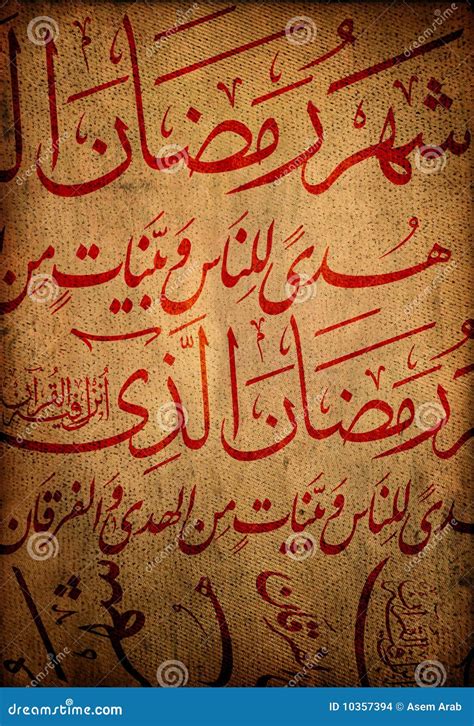 شهر رمضان ال
هدىً للناس وبيّنات من
ر رمضان الَّذي أنزل فيه القرآن
دىً للناس وبيّنات من الهدى والفرقان
شهر
dreamstime
ID 10357394 © Asem Arab